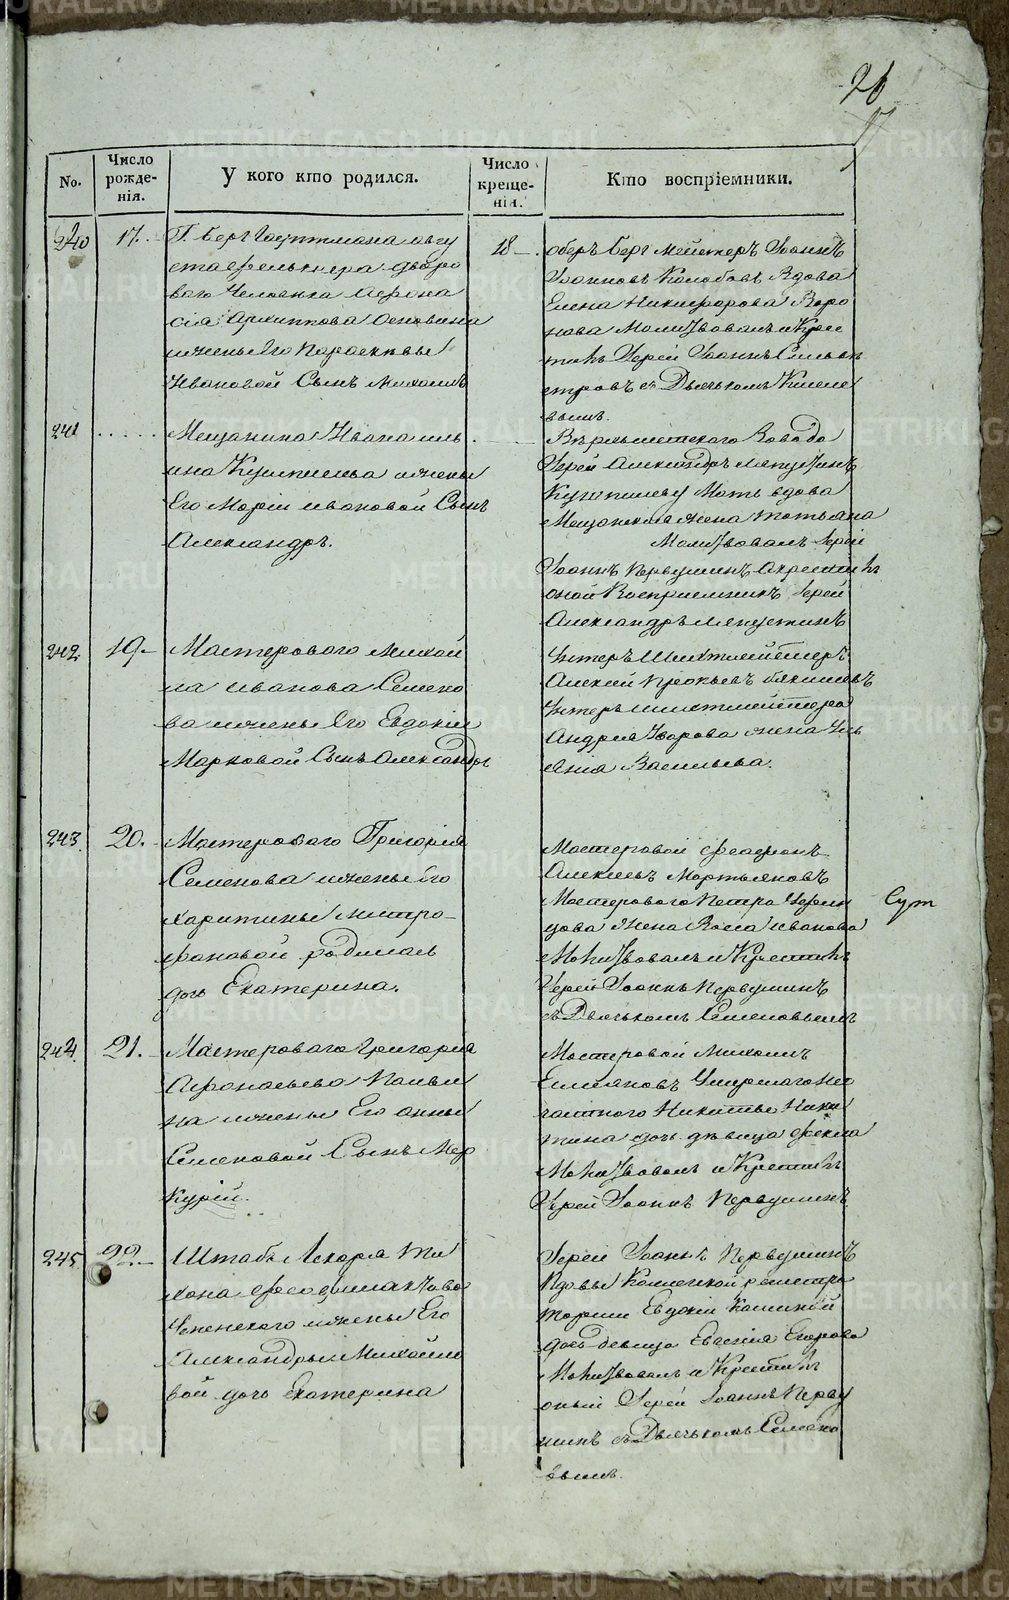 26
No.
Число рожде-нія.
У кого кто родился.
Число креще-нія.
Кто воспріемники.
240
17.
Г. Бергъ Гауптмана авгу
ста Фрелькнера дворо
ваго человѣка Афона
сія Архиппова
и жены Его Параскевы
Ивановой Сынъ Михаилъ
18
оберъ Бергъ Мейстеръ Іоаннъ
Іоанновъ Колобовъ Вдова
Елена Никифорова Воро
нова Молитвовалъ и Крес
тилъ Іерей Іоаннъ Сильвес
тровъ съ Дьячькомъ Киселе
вымъ.
241
Мещанина Ивана иль
ина и жены
Его Маріи ивановой Сынъ
Александръ.
Завода
Іерей Александръ Ляпустинъ
Мать вдова
Мещанская жена Татьяна
Молитвовалъ Іерей
Іоаннъ Первушинъ А крестилъ
оной Воспріемникъ Іерей
Александръ Ляпустинъ
242
19
Мастероваго Михай
ла иванова Семено
ва и жены Его Евдокіи
Марковой Сынъ Александръ
Унтеръ Шихтмейстеръ
Алексей Прокьевъ
Унтеръ шихтмейстера
Андрея Уварова жена Уль
яния Васильева.
243
20.
Мастероваго Григорія
Семенова и жены Его
Харитины митро-
фановой родилась
дочь Екатерина.
Мастеровой
Алексеевъ Мартьяновъ
Мастероваго Петра
цова жена Ивановa
Молитвовалъ и Крестилъ
Іерей Іоаннъ Первушинъ
съ Дьячькомъ Семеновымъ
244
21.
Мастероваго Григорія
Афонасьева Паньши
на и жены Его анны
Семеновой Сынъ Мер
курій.
Мастеровой Михаилъ
Емельяновъ Умершаго Не
Никиты Ники
тина дочь дѣвица Фекла
Молитвовалъ и Крестилъ
Іерей Іоаннъ Первушинъ
245
22
Штабъ Лекаря Ти
хона
Успенскаго и жены Его
Александры Михайло
вой дочь Екатерина
Іерей Іоаннъ Первушинъ
Вдовы Коллежской регистра
торши Евдокіи
дочь девица Егорова
Молитвовалъ и Крестилъ
оный Іерей Іоаннъ Перву
шинъ съ Дьячькомъ Семено
вымъ.
METRIKI.GASO-URAL.RU